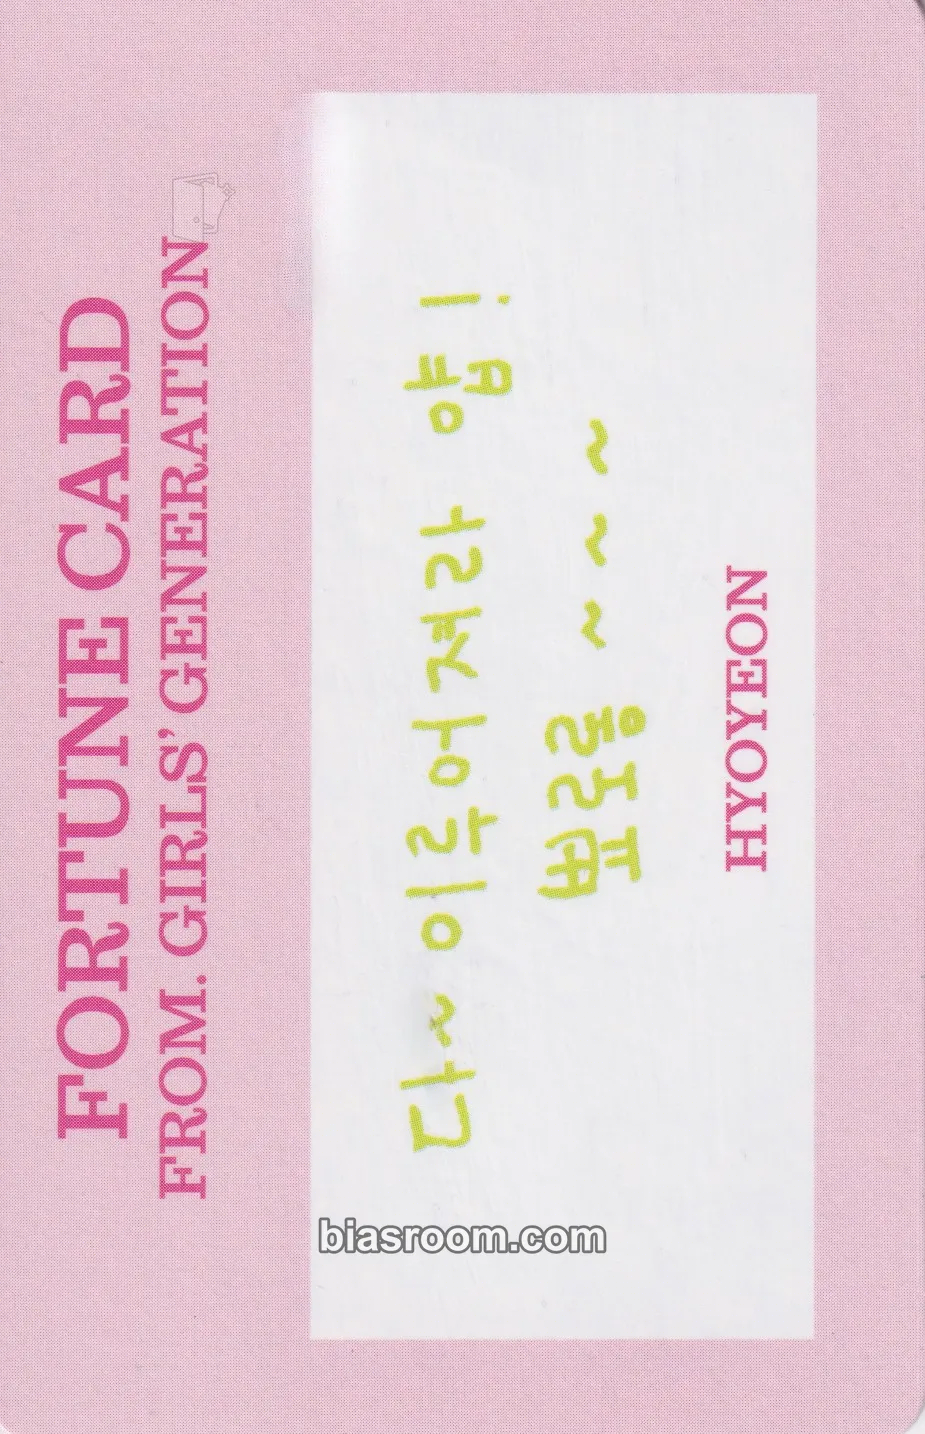 FORTUNE CARD
FROM. GIRLS' GENERATION
다~ 이루어져라 얍!
뾰로롱~~~
HYOYEON
biasroom.com